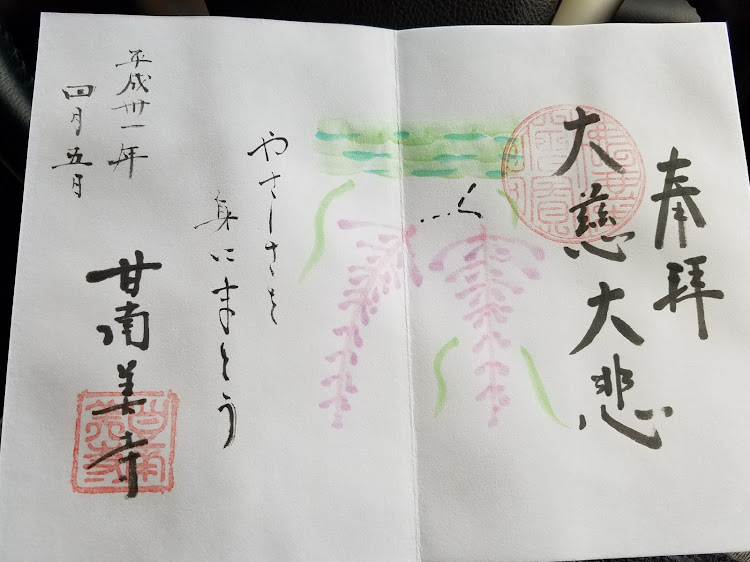 奉拝
大慈大悲
やさしさを
身にまとう
平成卅一年
四月五日
甘南美寺